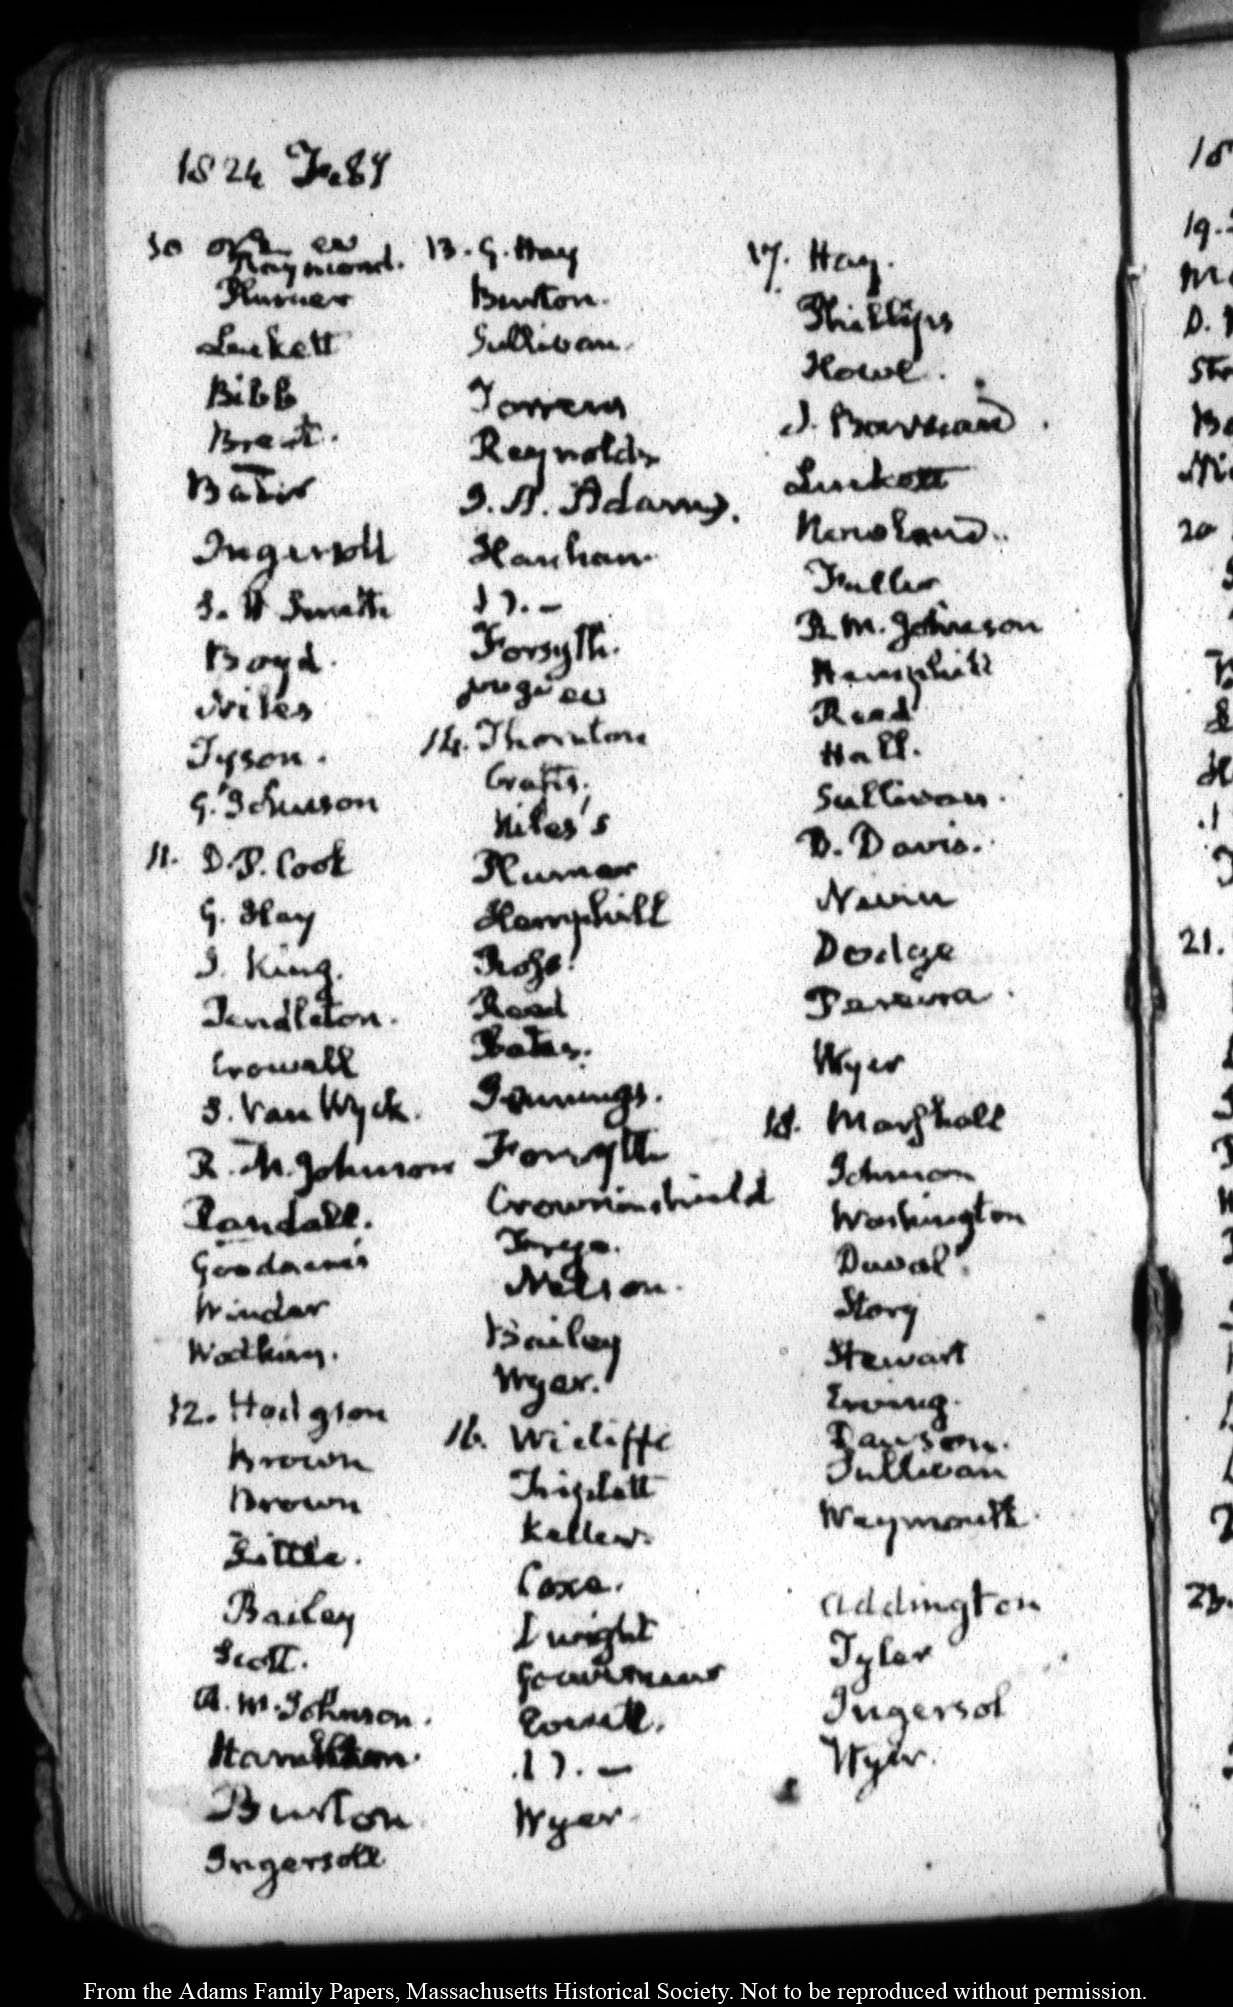 1824 Feby
10
Raymond.
Plumer
Luckett
Bibb
Brent.
Bates
Ingersoll
S. H Smith
Boyd.
Niles
Tyson.
G. Johnson
11. D. P. Cook
G. Hay
J. King.
Pendleton.
Crowell
S. Van Wyck.
R. M. Johnson
Randall.
Winder
Watkins.
12. Hodgson
Brown
Brown
Little.
Bailey
Scott.
R. M. Johnson.
Burton
Ingersoll
13. G. Hay
Burton.
Sullivan.
Torrens
Reynolds
Hanham
Forsyth.
14. Thornton
Crafts.
Niles's
Plumer
Hemphill
Ross.
Reed
Bates.
Jennings.
Forsyth
Crowninshield
Nelson.
Bailey
Wyer.
16. Wicliffe
Triplett
Kellen.
Coxe.
Dwight
Gouverneur
Wyer
17. Hay.
Phillips
Howe.
Luckett
Newland.
Fuller
R. M. Johnson
Hemphill
Read
Hall.
Sullivan.
D. Davis.
Dodge
Pereira.
Wyer
18. Marshall
Johnson
Washington
Duval.
Story
Stewart
Erving.
Dawson.
Sullivan
Weymouth
Addington
Tyler
Ingersol
Wyer.
19.
20
21.
23.
From the Adams Family Papers, Massachusetts Historical Society. Not to be reproduced without permission.